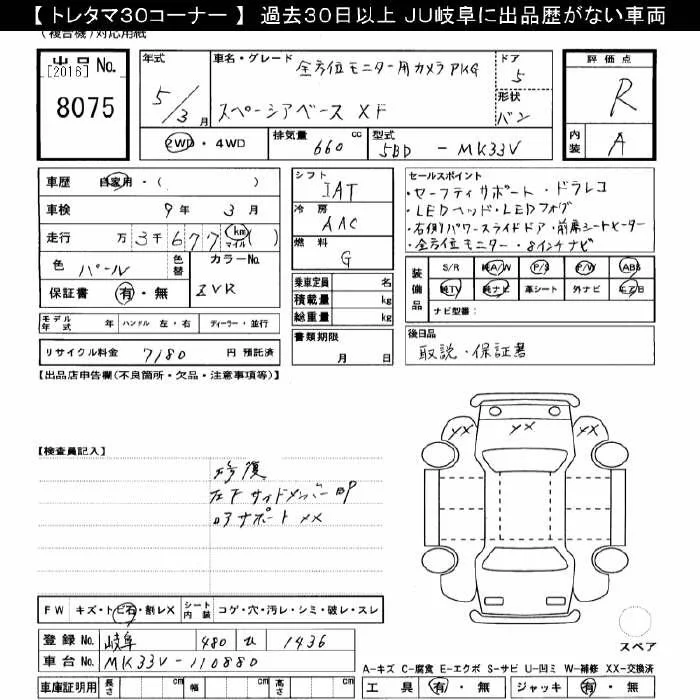 【 トレタマ30コーナー 】 過去30日以上 JU岐阜に出品歴がない車両
(複合機)対応用紙
出品 No.
[2016]
8075
年式
5/3月
車名・グレード
全方位モニター用カメラPKG
スペーシアベース XF
ドア
5
形状
バン
評価点
R
内装
A
2WD・4WD
排気量
660 cc
型式
5BD - MK33V
車歴 自家用・( )
車検 9年 3月
走行 万 3千 6 7 7 km マイル ( )
色 パール 色替 カラーNo.
保証書 有・無 ZVR
シフト
IAT
冷房
AAC
燃料
G
乗車定員 名
積載量 kg
総重量 kg
セールスポイント
・セーフティサポート・ドラレコ
・LEDヘッド・LEDフォグ
・右側パワースライドドア・前席シートヒーター
・全方位モニター・8インチナビ
装備品
S/R 純A/W P/S P/W ABS
純TV 純ナビ 革シート 外ナビ エアB
ナビ型番:
モデル年式 年 ハンドル 左・右 ディーラー・並行
書類期限
月 日
後日品
取説・保証書
リサイクル料金 7180 円 預託済
【出品店申告欄(不良箇所・欠品・注意事項等)】
【検査員記入】
修復
左F サイドメンバーBP
ロアサポート XX
XX XX XX
FW キズ・トビ石・割レX シート内装 コゲ・穴・汚レ・シミ・破レ・スレ
登録 No. 岐阜 480 ひ 1436
車台 No. MK33V-110880
車庫証明用 長さ cm 幅 cm 高さ cm
スペア
A-キズ C-腐食 E-エクボ S-サビ U-凹ミ W-補修 XX-交換済
工具 有・無 ジャッキ 有・無